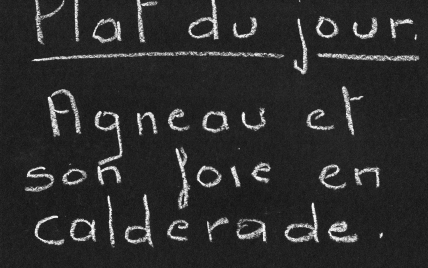 Plat du jour.
Agneau et
son foie en
calderade.